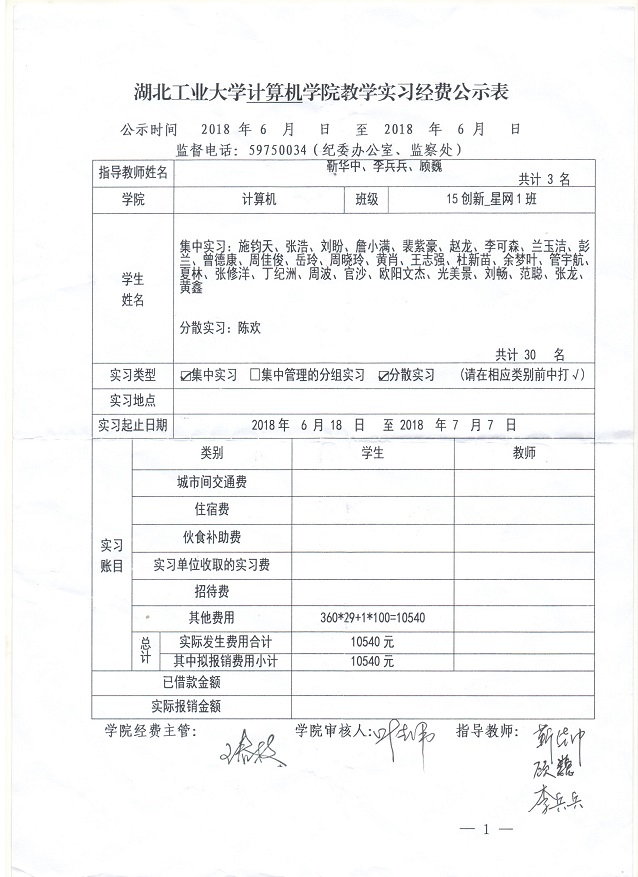 湖北工业大学计算机学院教学实习经费公示表
公示时间 2018 年 6 月 日 至 2018 年 6 月 日
监督电话: 59750034（纪委办公室、监察处）
指导教师姓名 靳华中、李兵兵、顾巍
共计 3 名
学院 计算机 班级 15创新_星网1班
学生姓名
集中实习: 施钧天、张浩、刘盼、詹小满、裴紫豪、赵龙、李可森、兰玉洁、彭
兰、曾德康、周佳俊、岳玲、周晓玲、黄肖、王志强、杜新苗、余梦叶、管宇航、
夏林、张修洋、丁纪洲、周波、官沙、欧阳文杰、光美景、刘畅、范聪、张龙、
黄鑫
分散实习: 陈欢
共计 30 名
实习类型 ☑集中实习 □集中管理的分组实习 ☑分散实习 （请在相应类别前中打√）
实习地点
实习起止日期 2018年 6月18 日 至2018 年7 月7 日
实习账目
类别 学生 教师
城市间交通费
住宿费
伙食补助费
实习单位收取的实习费
招待费
其他费用 360*29+1*100=10540
总计
实际发生费用合计 10540 元
其中拟报销费用小计 10540 元
已借款金额
实际报销金额
学院经费主管: 学院审核人: 指导教师: 靳华中
顾巍
李兵兵
— 1 —